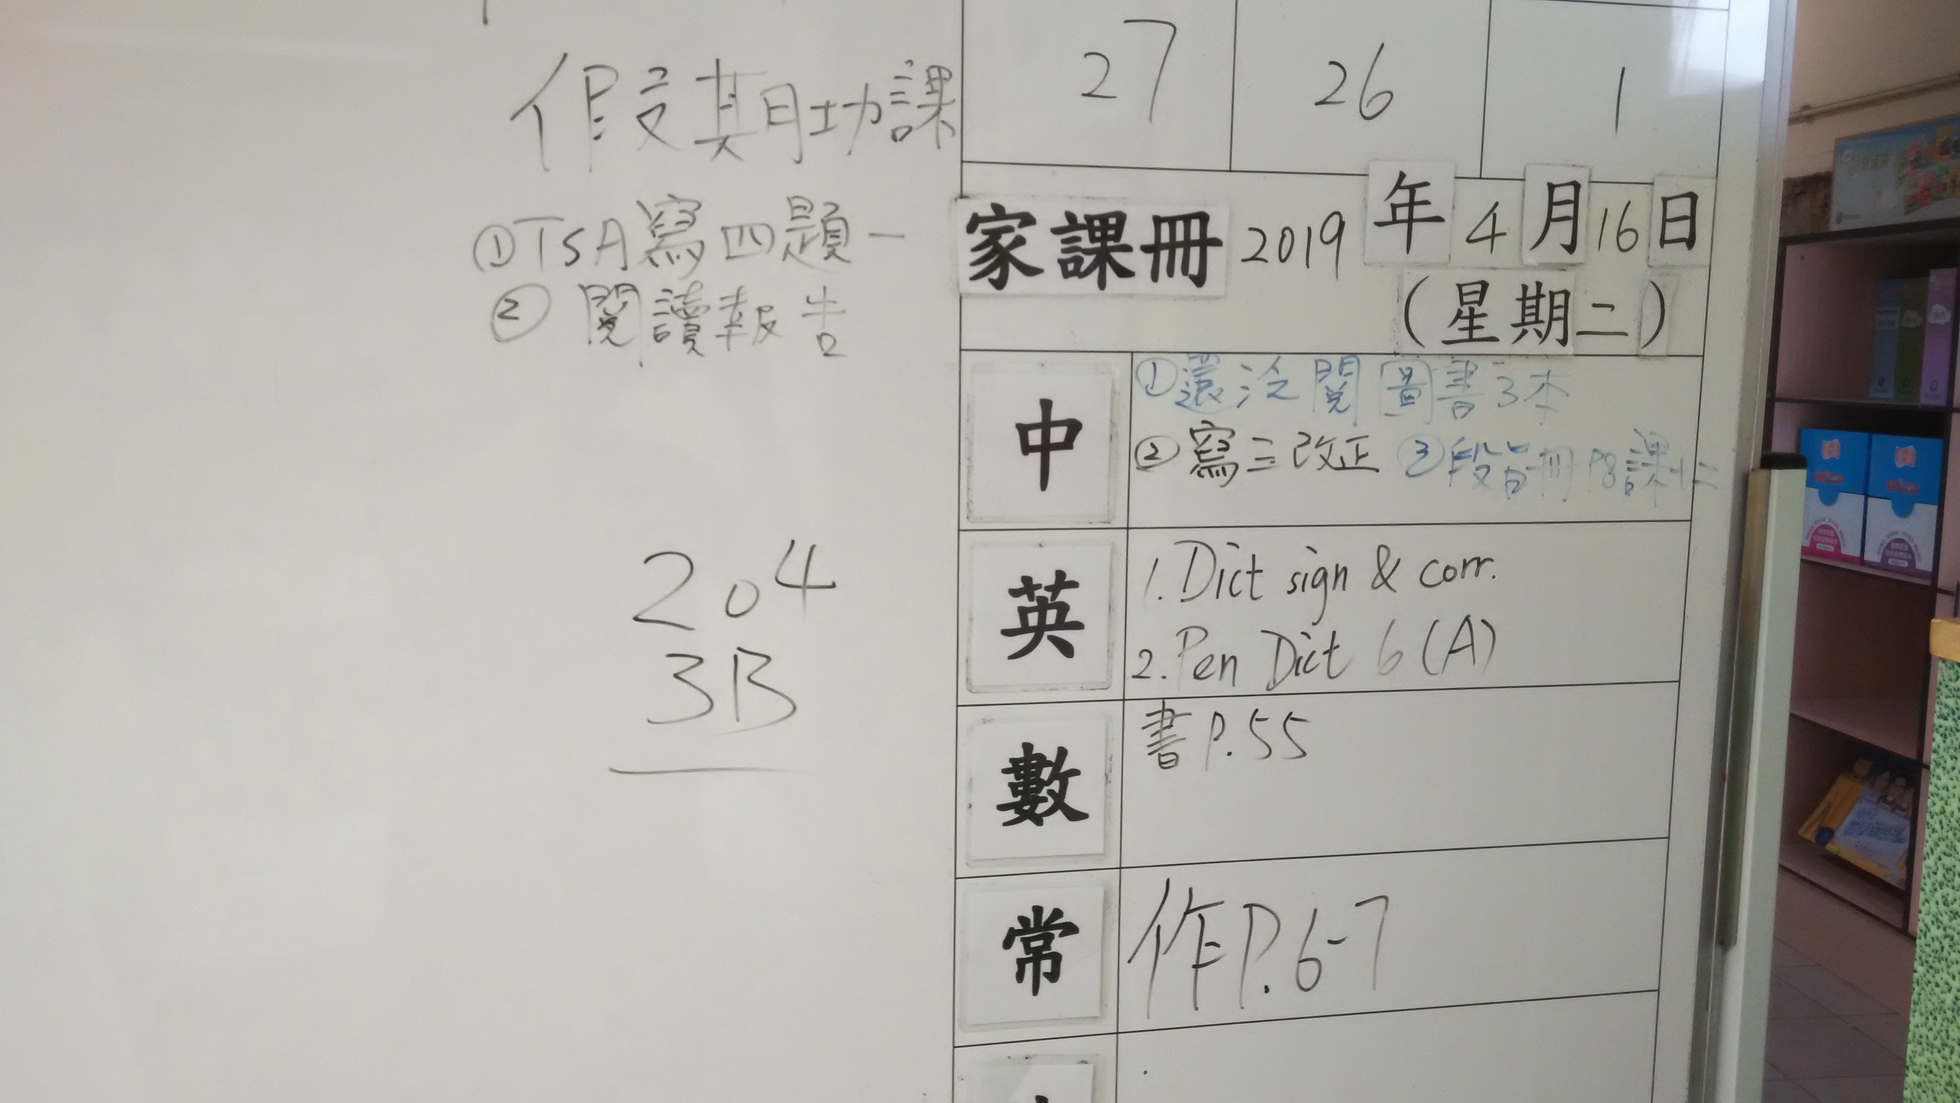 假期功課
①TSA寫四題一
② 閱讀報告
204
3B
27 26 1
家課冊 2019 年 4 月 16 日
(星期二)
中
①還泛閱圖書3本
②寫三改正 ③段旨冊P8課十二
英
1. Dict sign & corr.
2. Pen Dict 6(A)
數
書P.55
常
作P.6-7